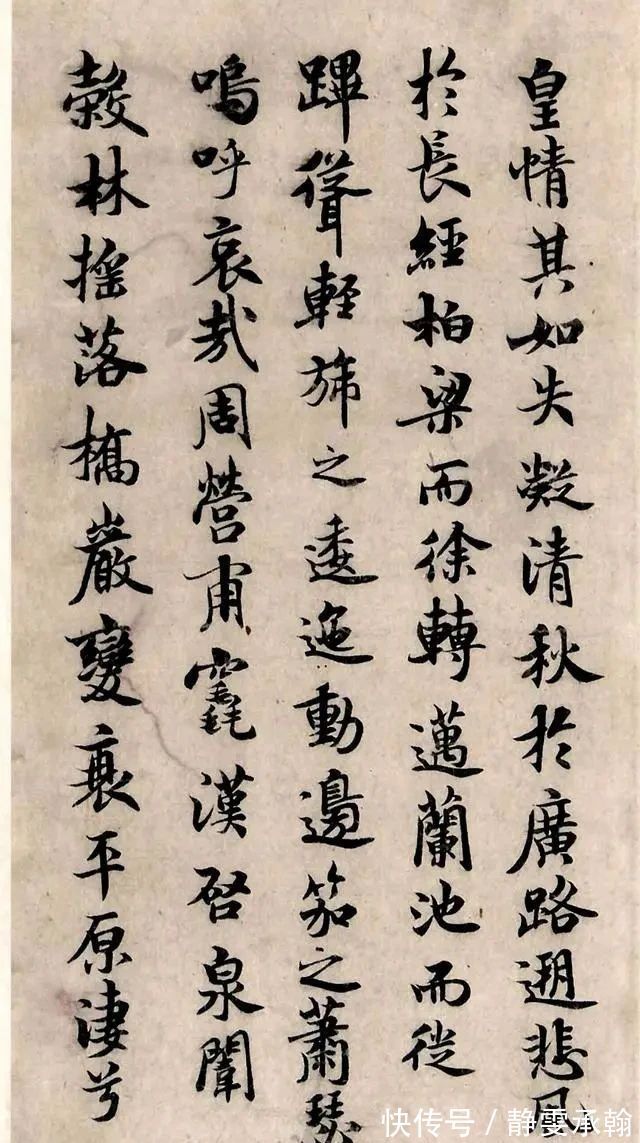 皇情其如失凝清秋於廣路遡悲風
於長經柏梁而徐轉邁蘭池而從
蹕聳輕旆之逶迤動邊笳之蕭瑟
嗚呼哀哉周營甫竁漢啓泉闈
穀林搖落橋巖變衰平原淒兮
快传号 / 静雯承翰